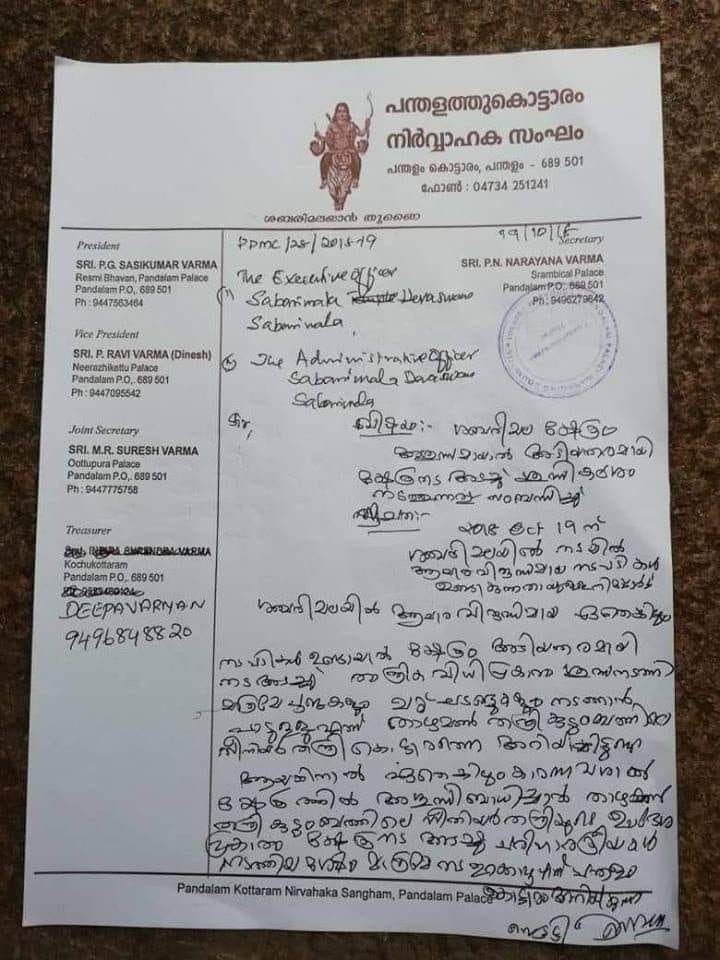 പന്തളത്തുകൊട്ടാരം
നിർവ്വാഹക സംഘം
പന്തളം കൊട്ടാരം, പന്തളം - 689 501
ഫോൺ : 04734 251241
ശബരിമലബാൻ തുണൈ
President
SRI. P.G. SASIKUMAR VARMA
Resmi Bhavan, Pandalam Palace
Pandalam P.O,. 689 501
Ph : 9447563464
Vice President
SRI. P. RAVI VARMA (Dinesh)
Neerazhikettu Palace
Pandalam P.O,. 689 501
Ph : 9447095542
Joint Secretary
SRI. M.R. SURESH VARMA
Oottupura Palace
Pandalam P.O,. 689 501
Ph : 9447775758
Treasurer
VARMA
Kochukottaram
Pandalam P.O,. 689 501
DEEPAVARMAN
9496848820
PPMC/28/2018-19
19/10/18
Secretary
SRI. P.N. NARAYANA VARMA
Srambical Palace
Pandalam P.O,. 689 501
Ph : 9496279642
The Executive Officer
(1) Sabarimala Devaswom
Sabarimala,
(2) The Administrative Officer
Sabarimala Devaswom
Sabarimala
സർ,
വിഷയം:- ശബരിമല ക്ഷേത്രം
അശുദ്ധമായാൽ അടിയന്തരമായി
ക്ഷേത്രനട അടച്ച് ശുദ്ധികർമ്മം
നടത്തുന്നത് സംബന്ധിച്ച്
സൂചന:-
2018 Oct 19 ന്
ശബരിമലയിൽ നടയിൽ
ആചാരവിരുദ്ധമായ നടപടികൾ
ശബരിമലയിൽ ആചാര വിരുദ്ധമായ ഏതെങ്കിലും
നടപടികൾ ഉണ്ടായാൽ ക്ഷേത്രം അടിയന്തരമായി
നട അടച്ച് താന്ത്രിക വിധി പ്രകാരം
മാത്രമേ പൂജകളും ചടങ്ങുകളും നടത്താൻ
പാടുള്ളൂ എന്ന് താഴമൺ തന്ത്രി കുടുംബത്തിലെ
സീനിയർ തന്ത്രി അറിയിച്ചിട്ടുണ്ട്
ആയതിനാൽ ഏതെങ്കിലും കാരണവശാൽ
ക്ഷേത്രത്തിൽ അശുദ്ധി ബാധിച്ചാൽ താഴമൺ
തന്ത്രി കുടുംബത്തിലെ സീനിയർ തന്ത്രിയുടെ ഉപദേശ
പ്രകാരം ക്ഷേത്രനട അടച്ച് പരിഹാരക്രിയകൾ
നടത്തിയ ശേഷം മാത്രമേ നട തുറക്കാവൂ എന്ന് പന്തളം
കൊട്ടാരം അറിയിക്കുന്നു
Pandalam Kottaram Nirvahaka Sangham, Pandalam Palace